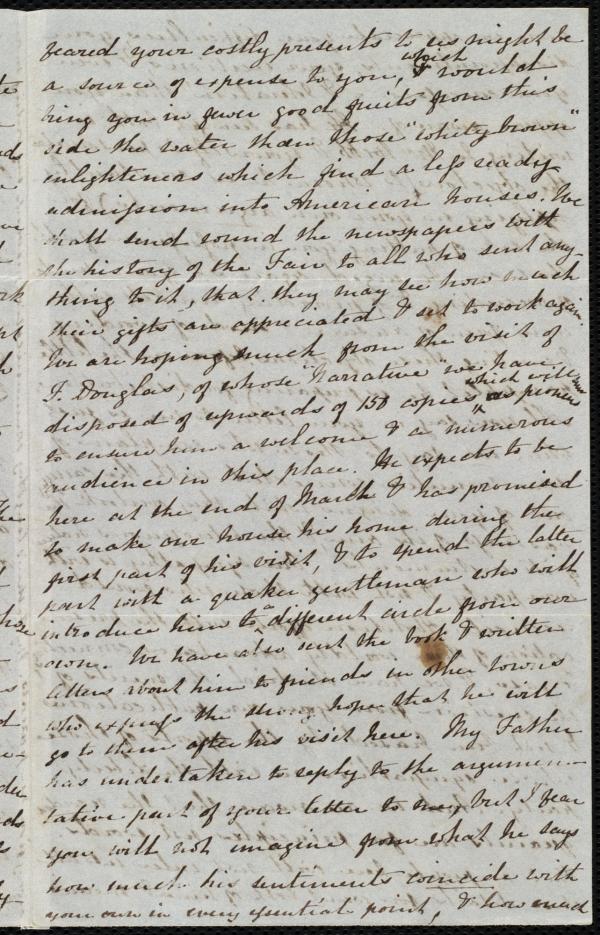 feared your costly presents to us might be
a source of expense to you, & which would
bring you in fewer good fruits from this
side the water than those "whity brown"
enlighteners which find a less ready
admission into American houses. We
shall send round the newspapers with
the history of the Fair to all who sent any-
thing to it, that they may see how much
their gifts are appreciated & set to work again.
We are hoping much from the visit of
F. Douglas, of whose "Narrative" we have
disposed of upwards of 150 copies, which will
as pioneers
to ensure him a welcome & a numerous
audience in this place. He expects to be
here at the end of March & has promised
to make our house his home during the
first part of his visit, & to spend the latter
part with a quaker gentleman who will
introduce him to a different circle from our
own. We have also sent the book & written
letters about him to friends in other towns
who express the strong hope that he will
go to them after his visit here. My Father
has undertaken to reply to the argumen-
tative part of your letter to me, but I fear
you will not imagine from what he says
how much his sentiments coincide with
your own in every essential point, & how much